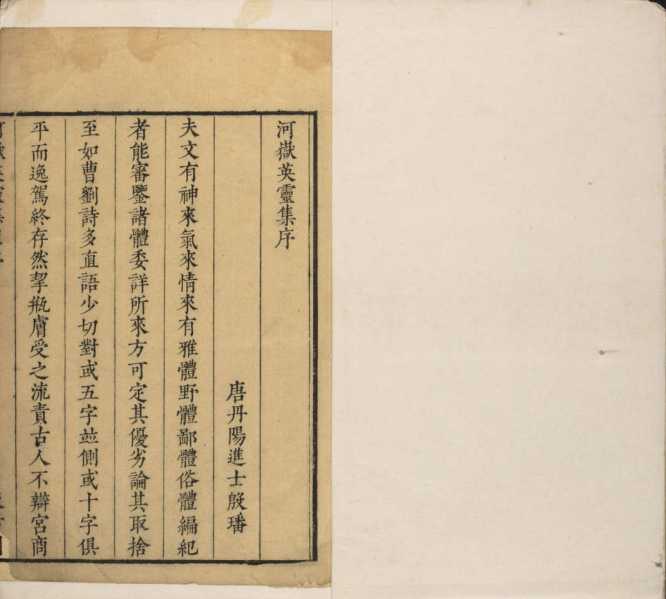 河嶽英靈集序
唐丹陽進士殷璠
夫文有神來氣來情來有雅體野體鄙體俗體編紀
者能審鑒諸體委詳所來方可定其優劣論其取捨
至如曹劉詩多直語少切對或五字竝側或十字俱
平而逸駕終存然挈瓶膚受之流責古人不辯宮商